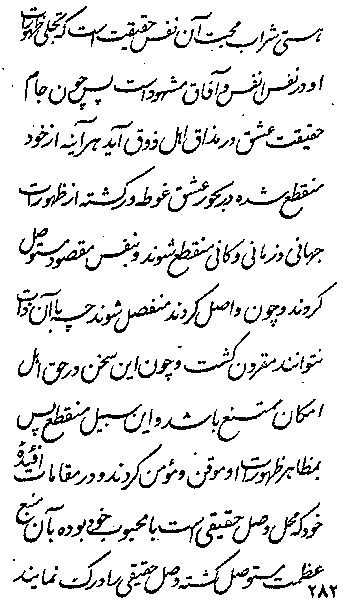 هستی شراب محبت آن نفس حقیقت است که تجلّی ظهورات
او در نفس انفس و آفاق مشهود است پس چون جام
حقیقت عشق در مذاق اهل ذوق آید هر آینه از خود
منقطع شده در بحور عشق غوطه ور کشته از ظهورات
جهانی و زمانی و کانی منقطع شوند و بنفس مقصود متوصل
کردند و چون واصل کردند منفصل شوند چه با آن ذات
نتوانند مقرون کشت و چون این سخن در حق اهل
امکان ممتنع باشد و این سبیل منقطع پس
بمظاهر ظهورات او موقن و مؤمن کردند و در مقامات افئدهٔ
خود که محل وصل حقیقی است با محبوب خود بوده بآن منبع
عظمت متوصل کشته وصل حقیقی را درک نمایند
۲۸۲